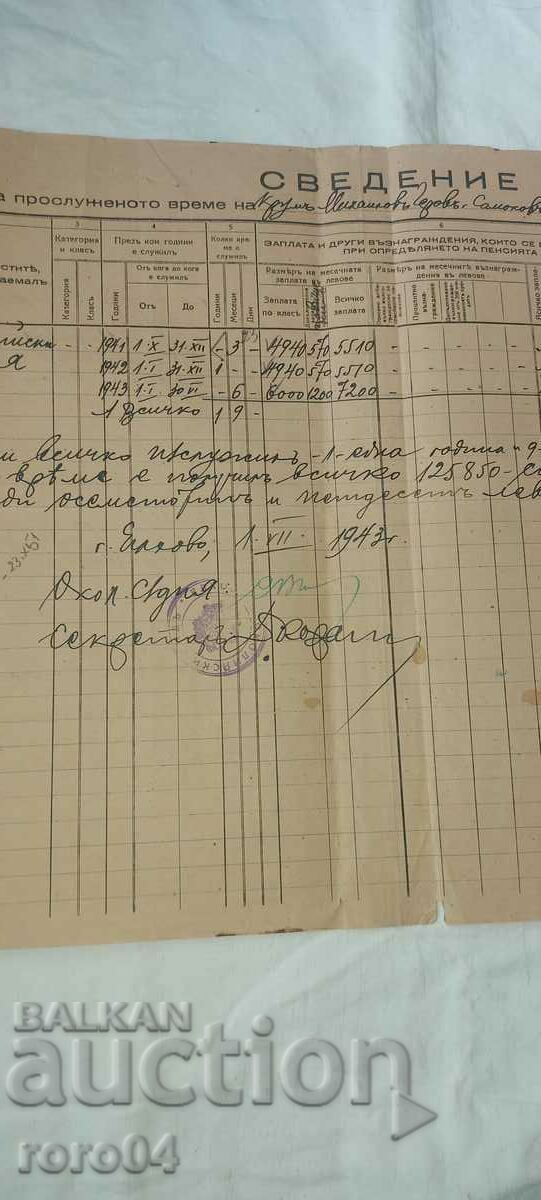 СВЕДЕНИЕ
а прослуженото време на Крумъ Михаиловъ Геровъ, Самоковъ
3 4 5 6
Категория и класъ
Презъ кои години е служилъ
Колко време е служилъ
ЗАПЛАТА И ДРУГИ ВЪЗНАГРАЖДЕНИЯ, КОИТО СЕ
ПРИ ОПРЕДѢЛЯНЕТО НА ПЕНСИЯТА
ститѣ,
аемалъ
Категория
Класъ
Години
Отъ кога до кога е служилъ
Отъ
До
Години
Месеци
Дни
Размѣръ на месечната заплата въ левове
Заплата по класъ
Всичко заплата
Размѣръ на месечнитѣ възнаграждения въ левове
Процентно възнаграждение
- - 1941 1·X 31·XII - 3 - 4940 570 5510 - - -
я 1942 1·I 31·XII 1 - - 4940 570 5510 - - -
1943 1·I 30 VI - 6 - 6000 1200 7200 - - -
Всичко 1 9 -
и всичко прослужилъ -1- една година и 9-
време е получилъ всичко 125850- с
ди осемстотинъ и петдесетъ лев
г. Елхово, 1. VII. 1943 г.
23.XI.51
Окол. Съдия:
Секретаръ:
BALKAN
auction
roro04